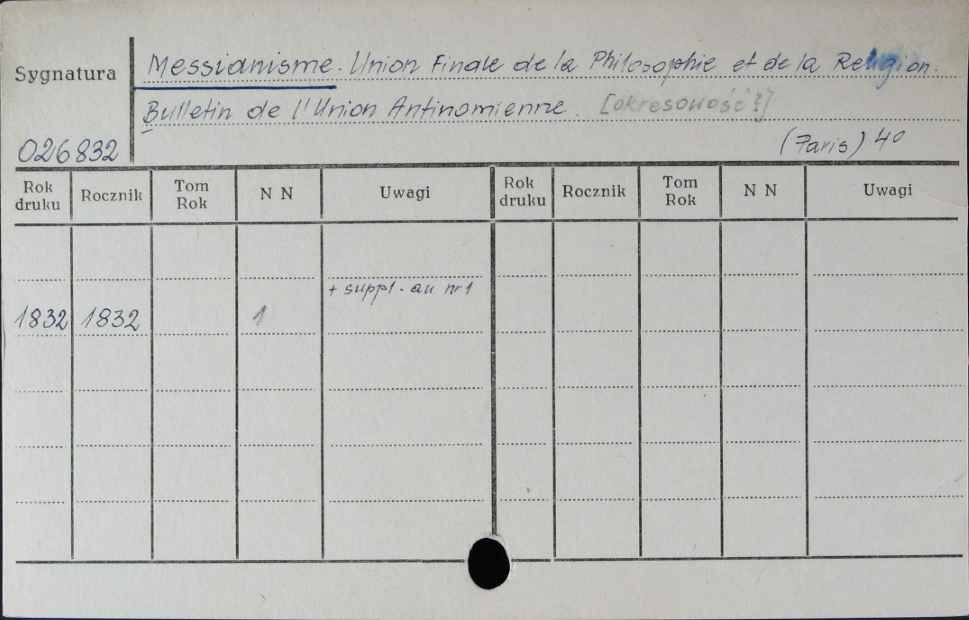 Sygnatura
Messianisme. Union Finale de la Philosophie et de la Religion.
Bulletin de l'Union Antinomienne. [okresowość?]
026832
(Paris) 4°
Rok druku Rocznik Tom Rok N N Uwagi Rok druku Rocznik Tom Rok N N Uwagi
+ suppl. au nr 1
1832 1832 1